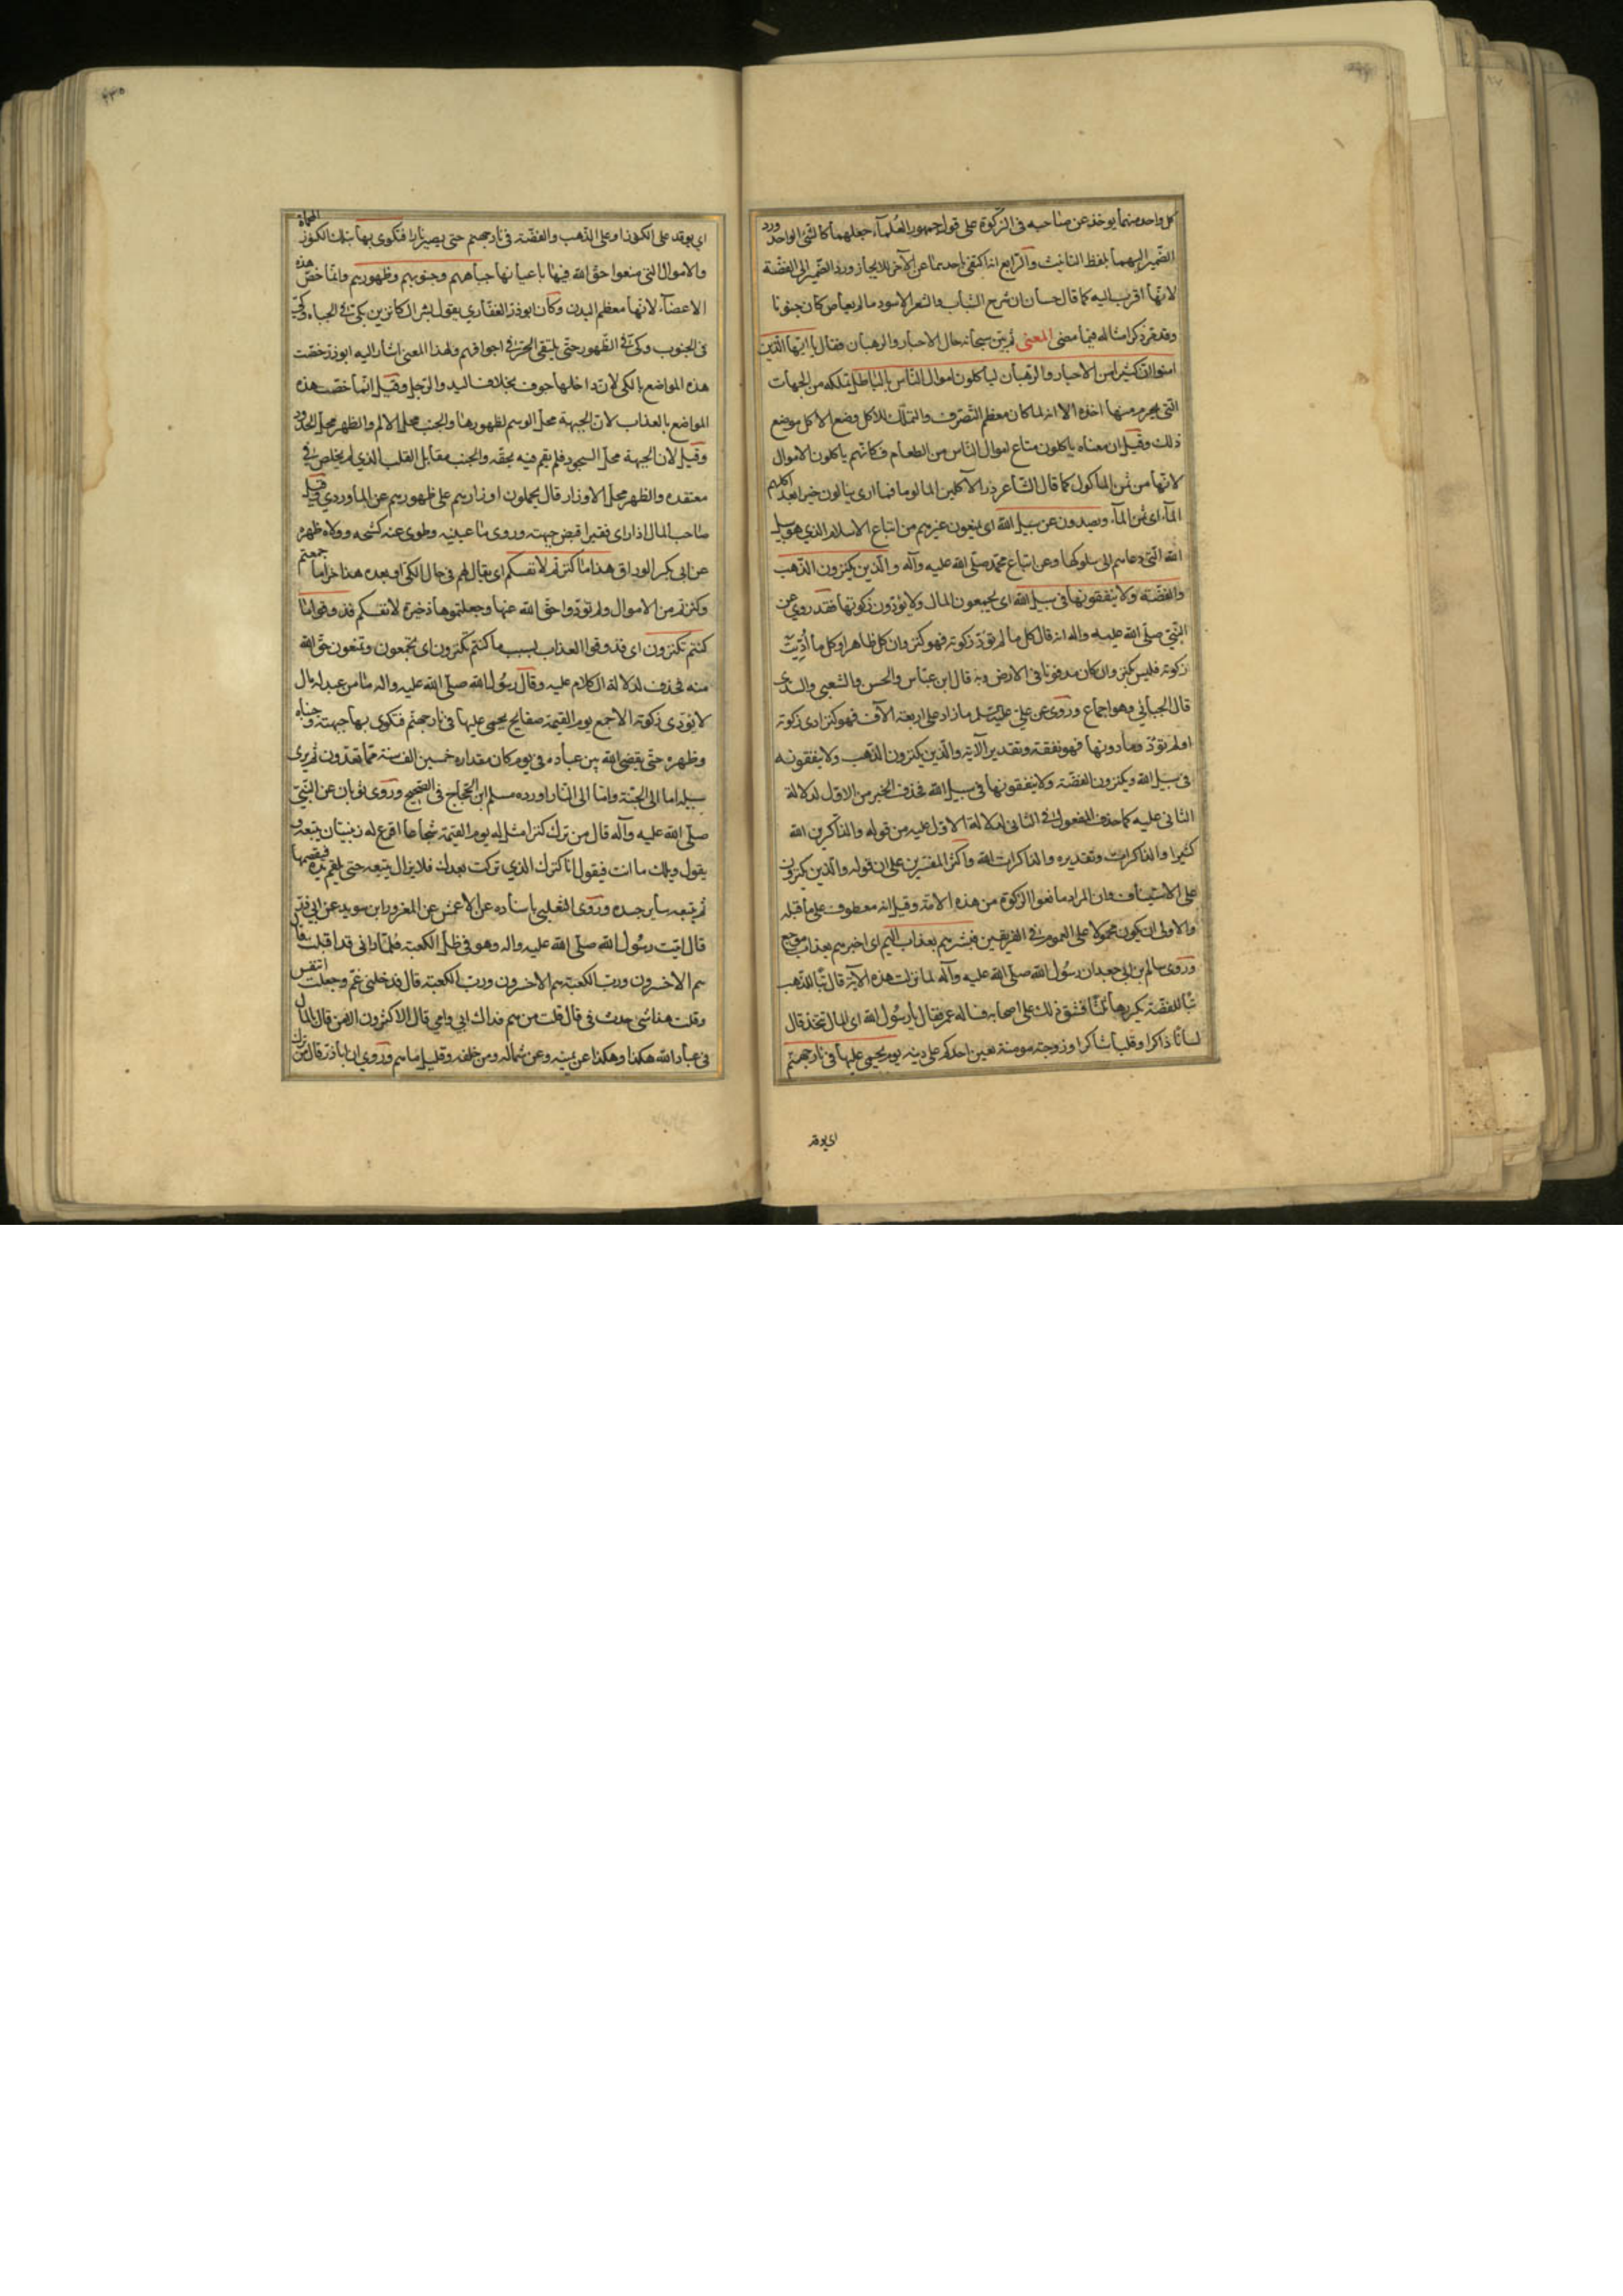 كل واحد منهما يوخذ عن صاحبه فى الزكوة على قول جمهور العلماء جعلهما كالشئ الواحد ورد
الضمير اليهما بلفظ التانيث والرابع انه اكتفى باحديهما عن الآخر للايجاز ورد الضمير الى الفضة
لانها اقرب اليه كما قال حسان ان شرح الشباب والشعر الاسود مالم يعاص كان جنونا
وقد مر ذكر امثاله فيما مضى المعنى ثم بين سبحانه حال الاحبار والرهبان فقال يا ايها الذين
امنوا ان كثيرا من الاحبار والرهبان لياكلون اموال الناس بالباطل بتملكه من الجهات
التى يحرم منها اخذه الا انه لما كان معظم التصرف والتملك للاكل وضع الاكل موضع
ذلك وقيل ان معناه ياكلون متاع اموال الناس من الطعام فكانهم ياكلون الاموال
لانها من ثمن الماكول كما قال الشاعر ذر الآكلين الما لوما فما ارى ينالون خيرا بعد اكلهم
المآء اى ثمن المآء ويصدون عن سبيل الله اى يمنعون غيرهم من اتباع الاسلام الذي هو سبيل
الله التى دعاهم الى سلوكها وعن اتباع محمد صلى الله عليه وآله والذين يكنزون الذهب
والفضة ولا ينفقونها فى سبيل الله اى يجمعون المال ولا يؤدون زكوتها فقد روي عن
النبي صلى الله عليه واله انه قال كل ما لم تؤد زكوته فهو كنز وان كان ظاهرا وكل ما أدّيت
زكوته فليس بكنز وان كان مدفونا فى الارض وبه قال ابن عباس والحسن والشعبي والسدى
قال الجبائي وهو اجماع وروى عن علي عليه السلم ما زاد على اربعة الآف فهو كنز ادى زكوته
اولم تؤد وما دونها فهو نفقة وتقدير الآية والذين يكنزون الذهب ولا ينفقونه
فى سبيل الله ويكنزون الفضة ولا ينفقونها فى سبيل الله فحذف الخبر من الاول لدلالة
الثانى عليه كما حذف المفعول فى الثانى لدلالة الاول عليه من قوله والذاكرين الله
كثيرا والذاكرات وتقديره والذاكرات الله واكثر المفسرين على ان قوله والذين يكنزون
على الاستيناف وان المراد مانعوا الزكوة من هذه الامة وقيل انه معطوف على ما قبله
والاولى ان يكون محمولا على العموم فى الفريقين فبشرهم بعذاب اليم اى اخبرهم بعذاب موجع
وروى سالم بن ابى جعد ان رسول الله صلى الله عليه وآله لما نزلت هذه الآية قال تبا للذهب
تبا للفضة يكررها ثلثا فشق ذلك على اصحابه فساله عمر فقال يا رسول الله اى المال نتخذ قال
لسانا ذاكرا وقلبا شاكرا وزوجة مومنة تعين احدكم على دينه يوم يحمى عليها فى نار جهنم
اى يوقد
٤٣٥
اي يوقد على الكنوز او على الذهب والفضة فى نار جهنم حتى يصير نارا فتكوى بها بتلك الكنوز المحماة
والاموال التى منعوا حق الله فيها باعيانها جباههم وجنوبهم وظهورهم وانما خص هذه
الاعضآء لانها معظم البدن وكان ابو ذر الغفاري يقول بشر الكانزين بكي فى الجباه وكي
فى الجنوب وكي فى الظهور حتى يلتقى الحر فى اجوافهم ولهذا المعنى اشار اليه ابو ذر خصت
هذه المواضع بالكى لان داخلها جوف بخلاف اليد والرجل وقيل انما خصت هذه
المواضع بالعذاب لان الجبهة محل الوسم لظهورها والجنب محل الالم والظهر محل الحدود
وقيل لان الجبهة محل السجود فلم يقم فيه بحقه والجنب مقابل القلب الذي لم يخلص فى
معتقده والظهر محل الاوزار قال يحملون اوزارهم على ظهورهم عن الماوردي وقيل
صاحب المال اذا راى فقيرا قبض جبهته وزوى ما عينيه وطوى عنه كشحه وولاه ظهره
عن ابى بكر الوراق هذا ما كنزتم لانفسكم اى يقال لهم فى حال الكى او بعده هذا جزاما جمعتم
وكنزتم من الاموال ولم تؤدوا حق الله عنها وجعلتموها ذخيرة لانفسكم فذوقوا ما
كنتم تكنزون اى فذوقوا العذاب بسبب ما كنتم تكنزون اى تجمعون وتمنعون حق الله
منه فحذف لدلالة الكلام عليه وقال رسول الله صلى الله عليه واله ما من عبد له مال
لا تؤدى زكوته الا جمع يوم القيمة صفايح يحمى عليها فى نار جهنم فتكوى بها جبهته وجنباه
وظهره حتى يقضى الله بين عباده فى يوم كان مقداره خمسين الف سنة مما تعدون ثم يرى
سبيله اما الى الجنة واما الى النار اورده مسلم ابن الحجاج فى الصحيح وروى ثوبان عن النبي
صلى الله عليه وآله قال من ترك كنزا مثل له يوم القيمة شجاعا اقرع له زبيبتان يتبعه و
يقول ويلك ما انت فيقول انا كنزك الذي تركت بعدك فلا يزال يتبعه حتى يلقم يده فيقصمها
ثم يتبعه ساير جسده وروى الثعلبي باسناده عن الاعمش عن المغرور ابن سويد عن ابي ذر
قال اتيت رسول الله صلى الله عليه واله وهو فى ظل الكعبة فلما رانى قد اقبلت قال
هم الاخسرون ورب الكعبة هم الاخسرون ورب الكعبة قال فدخلنى غم وجعلت اتنفس
وقلت هذا شئ حدث فى قال قلت من هم فداك ابي وامي قال الاكثرون الا من قال بالمال
فى عباد الله هكذا وهكذا عن يمينه وعن شماله ومن خلفه وقليل ما هم وروي ان ابا ذر قال من ترك